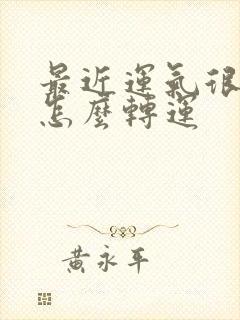 最近運氣很
怎麼轉運
黃永平